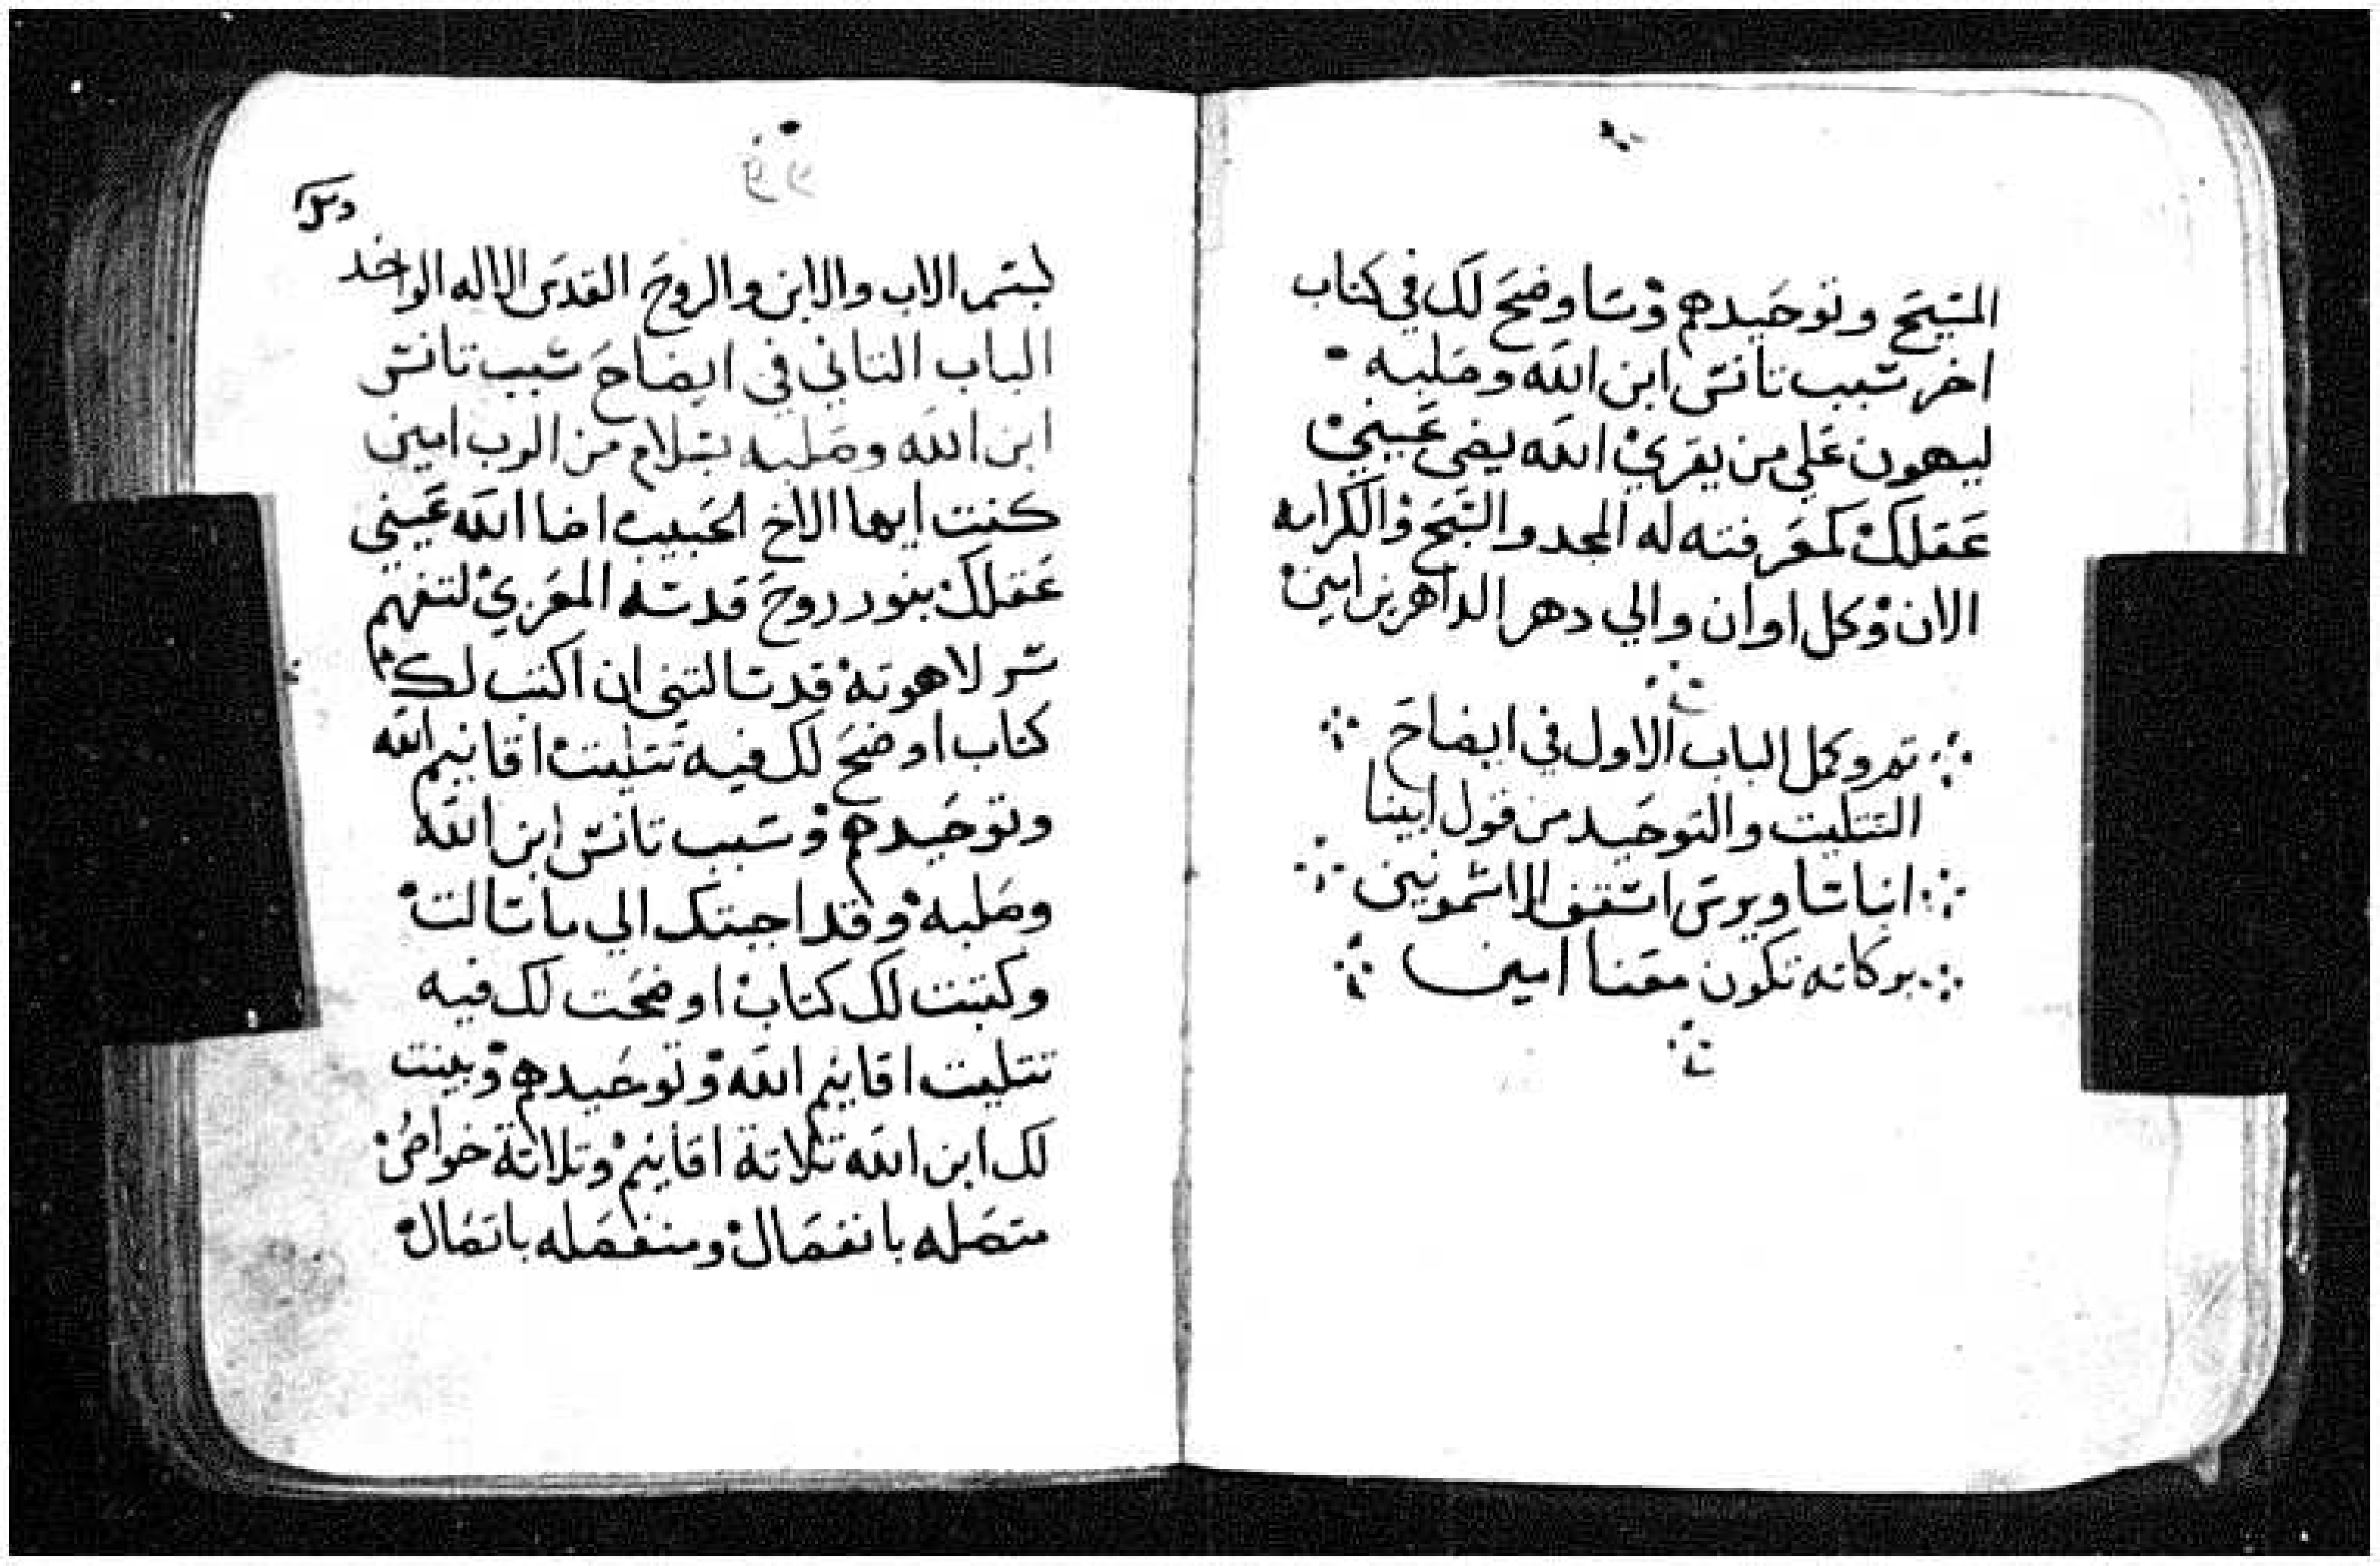 المسيح وتوحيدهم وساوضح لك في كتاب
اخر سبب تانس ابن الله وصلبه
ليهون علي من يقري الله يضي عيني
عقلك لمعرفته له المجد والسبح والكرامه
الان وكل اوان والي دهر الداهرين امين
تم وكمل الباب الاول في ايضاح
التتليت والتوحيد من قول ابينا
انبا ساويرس اسقف الاشمونين
بركاته تكون معنا امين
بسم الاب والابن والروح القدس الاله الواحد
الباب التاني في ايضاح سبب تانس
ابن الله وصلبه بسلام من الرب امين
كنت ايها الاخ الحبيب اضا الله عيني
عقلك بنور روح قدسه المعزي لتفهم
سر لاهوته قد سالتني ان اكتب لك
كتاب اوضح لك فيه تتليت اقانيم الله
وتوحيدهم وسبب تانس ابن الله
وصلبه وقد اجبتك الي ما سالت
وكتبت لك كتاب اوضحت لك فيه
تتليت اقانيم الله وتوحيدهم وبينت
لك ابن الله تلاتة اقانيم وتلاتة خواص
متصله بانفصال ومنفصله باتصال